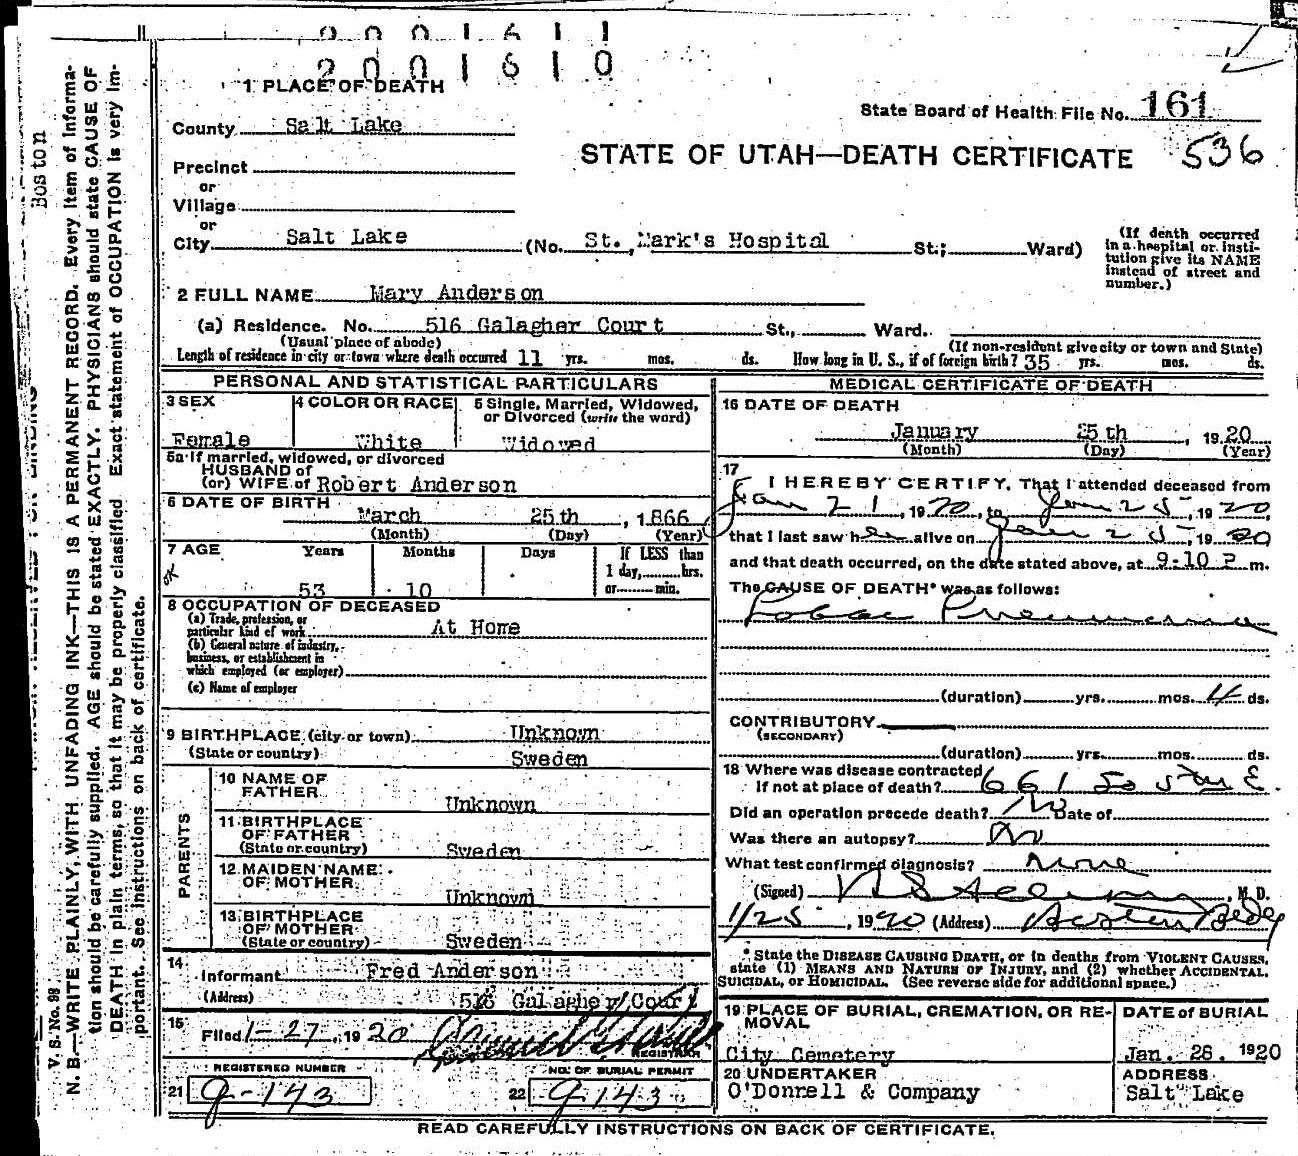 2001611
2001610
1 PLACE OF DEATH
State Board of Health File No. 161
County Salt Lake
STATE OF UTAH—DEATH CERTIFICATE 536
Precinct
or
Village
or
City Salt Lake (No. St. Mark's Hospital St.; Ward)
(If death occurred in a hospital or institution give its NAME instead of street and number.)
2 FULL NAME Mary Anderson
(a) Residence. No. 516 Galagher Court St., Ward.
(Usual place of abode) (If non-resident give city or town and State)
Length of residence in city or town where death occurred 11 yrs. mos. ds. How long in U. S., if of foreign birth? 35 yrs. mos. ds.
PERSONAL AND STATISTICAL PARTICULARS
3 SEX
Female
4 COLOR OR RACE
White
5 Single, Married, Widowed, or Divorced (write the word)
Widowed
5a If married, widowed, or divorced
HUSBAND of
(or) WIFE of Robert Anderson
6 DATE OF BIRTH
March 25th, 1866
(Month) (Day) (Year)
7 AGE Years Months Days If LESS than
1 day, hrs.
or min.
OK
53 10
8 OCCUPATION OF DECEASED
(a) Trade, profession, or
particular kind of work At Home
(b) General nature of industry,
business, or establishment in
which employed (or employer)
(c) Name of employer
9 BIRTHPLACE (city or town) Unknown
(State or country) Sweden
PARENTS
10 NAME OF
FATHER Unknown
11 BIRTHPLACE
OF FATHER
(State or country) Sweden
12 MAIDEN NAME
OF MOTHER Unknown
13 BIRTHPLACE
OF MOTHER
(State or country) Sweden
14
Informant Fred Anderson
(Address) 516 Galagher Court
15
Filed 1-27, 1920
REGISTRAR
REGISTERED NUMBER
21 9-143
NO. OF BURIAL PERMIT
22 9143
MEDICAL CERTIFICATE OF DEATH
16 DATE OF DEATH
January 25th, 1920
(Month) (Day) (Year)
17
I HEREBY CERTIFY, That I attended deceased from
Jan 21, 1920, to Jan 25, 1920,
that I last saw her alive on Jan 25, 1920
and that death occurred, on the date stated above, at 9:10 P m.
The CAUSE OF DEATH* was as follows:
Lobar Pneumonia
(duration) yrs. mos. 4 ds.
CONTRIBUTORY
(SECONDARY)
(duration) yrs. mos. ds.
18 Where was disease contracted
If not at place of death? 661 So 5th E.
Did an operation precede death? No Date of
Was there an autopsy? No
What test confirmed diagnosis? None
(Signed) , M. D.
1/25, 1920 (Address) Boston Bldg
* State the DISEASE CAUSING DEATH, or in deaths from VIOLENT CAUSES,
state (1) MEANS AND NATURE OF INJURY, and (2) whether ACCIDENTAL,
SUICIDAL, or HOMICIDAL. (See reverse side for additional space.)
19 PLACE OF BURIAL, CREMATION, OR REMOVAL
City Cemetery
DATE of BURIAL
Jan. 28. 1920
20 UNDERTAKER
O'Donnell & Company
ADDRESS
Salt Lake
READ CAREFULLY INSTRUCTIONS ON BACK OF CERTIFICATE.
Boston
V. S. No. 98
N. B.—WRITE PLAINLY, WITH UNFADING INK—THIS IS A PERMANENT RECORD. Every item of informa-
tion should be carefully supplied. AGE should be stated EXACTLY. PHYSICIANS should state CAUSE OF
DEATH in plain terms, so that it may be properly classified. Exact statement of OCCUPATION is very im-
portant. See instructions on back of certificate.